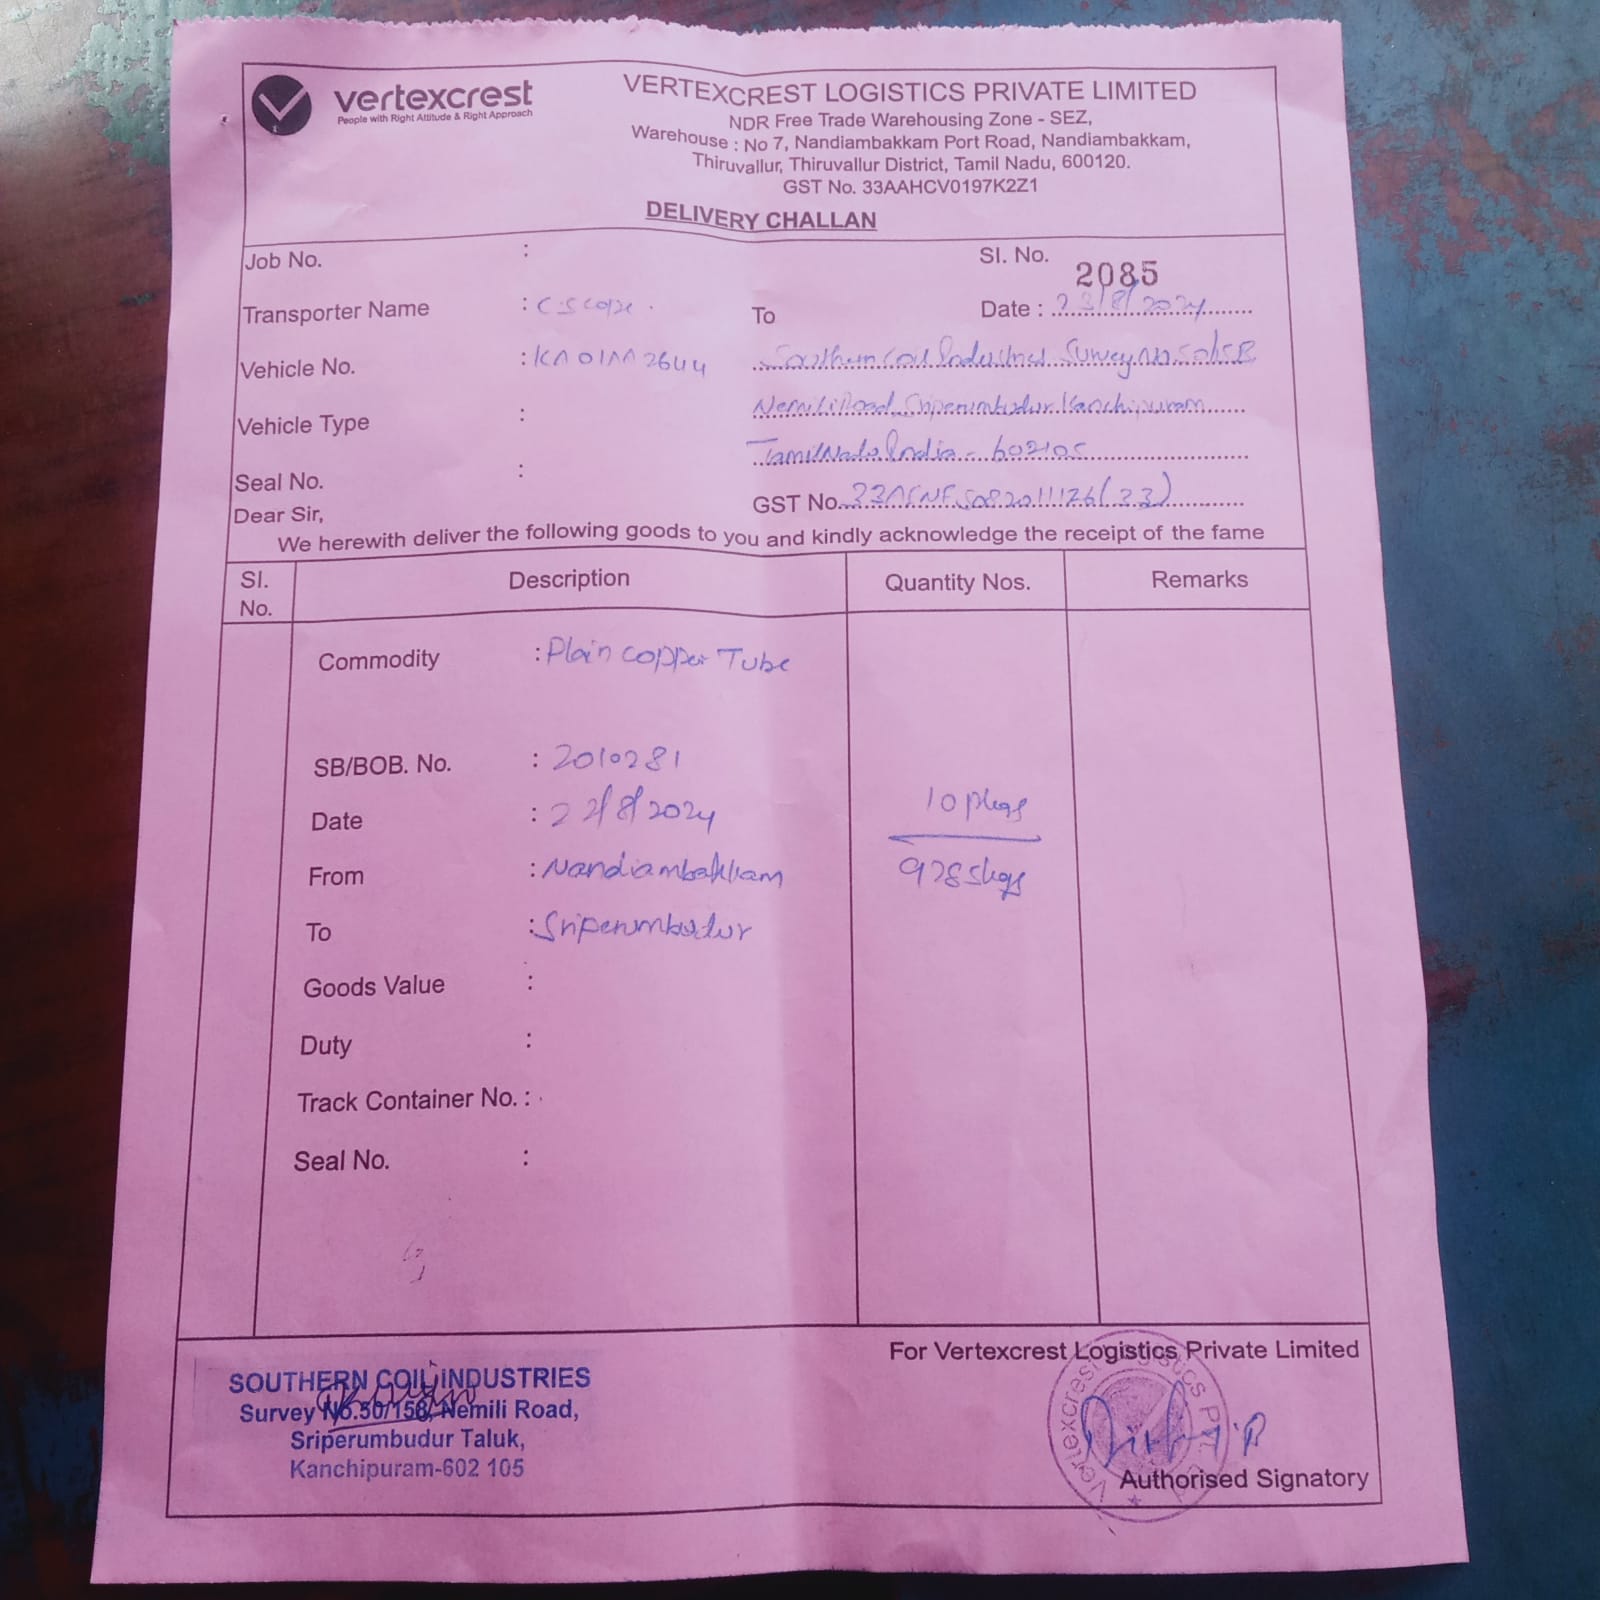 vertexcrest
People with Right Attitude & Right Approach
VERTEXCREST LOGISTICS PRIVATE LIMITED
NDR Free Trade Warehousing Zone - SEZ,
Warehouse : No 7, Nandiambakkam Port Road, Nandiambakkam,
Thiruvallur, Thiruvallur District, Tamil Nadu, 600120.
GST No. 33AAHCV0197K2Z1
DELIVERY CHALLAN
Job No. :
SI. No. 2085
Transporter Name :
To
Date : 23/8/2024
Vehicle No. : KA01AA2644
Southern Coil Industries Survey no
Vehicle Type :
Nemili Road Sriperumbudur Kanchipuram
Tamil Nadu India - 602105
Seal No. :
GST No.
Dear Sir,
We herewith deliver the following goods to you and kindly acknowledge the receipt of the fame
SI. No.
Description
Quantity Nos.
Remarks
Commodity : Plain copper Tube
SB/BOB. No. : 2010281
Date : 22/8/2024
10 pkgs
From : Nandiambakkam
9285kgs
To : Sriperumbudur
Goods Value :
Duty :
Track Container No. :
Seal No. :
For Vertexcrest Logistics Private Limited
SOUTHERN COIL INDUSTRIES
Survey No.50/158, Nemili Road,
Sriperumbudur Taluk,
Kanchipuram-602 105
Authorised Signatory